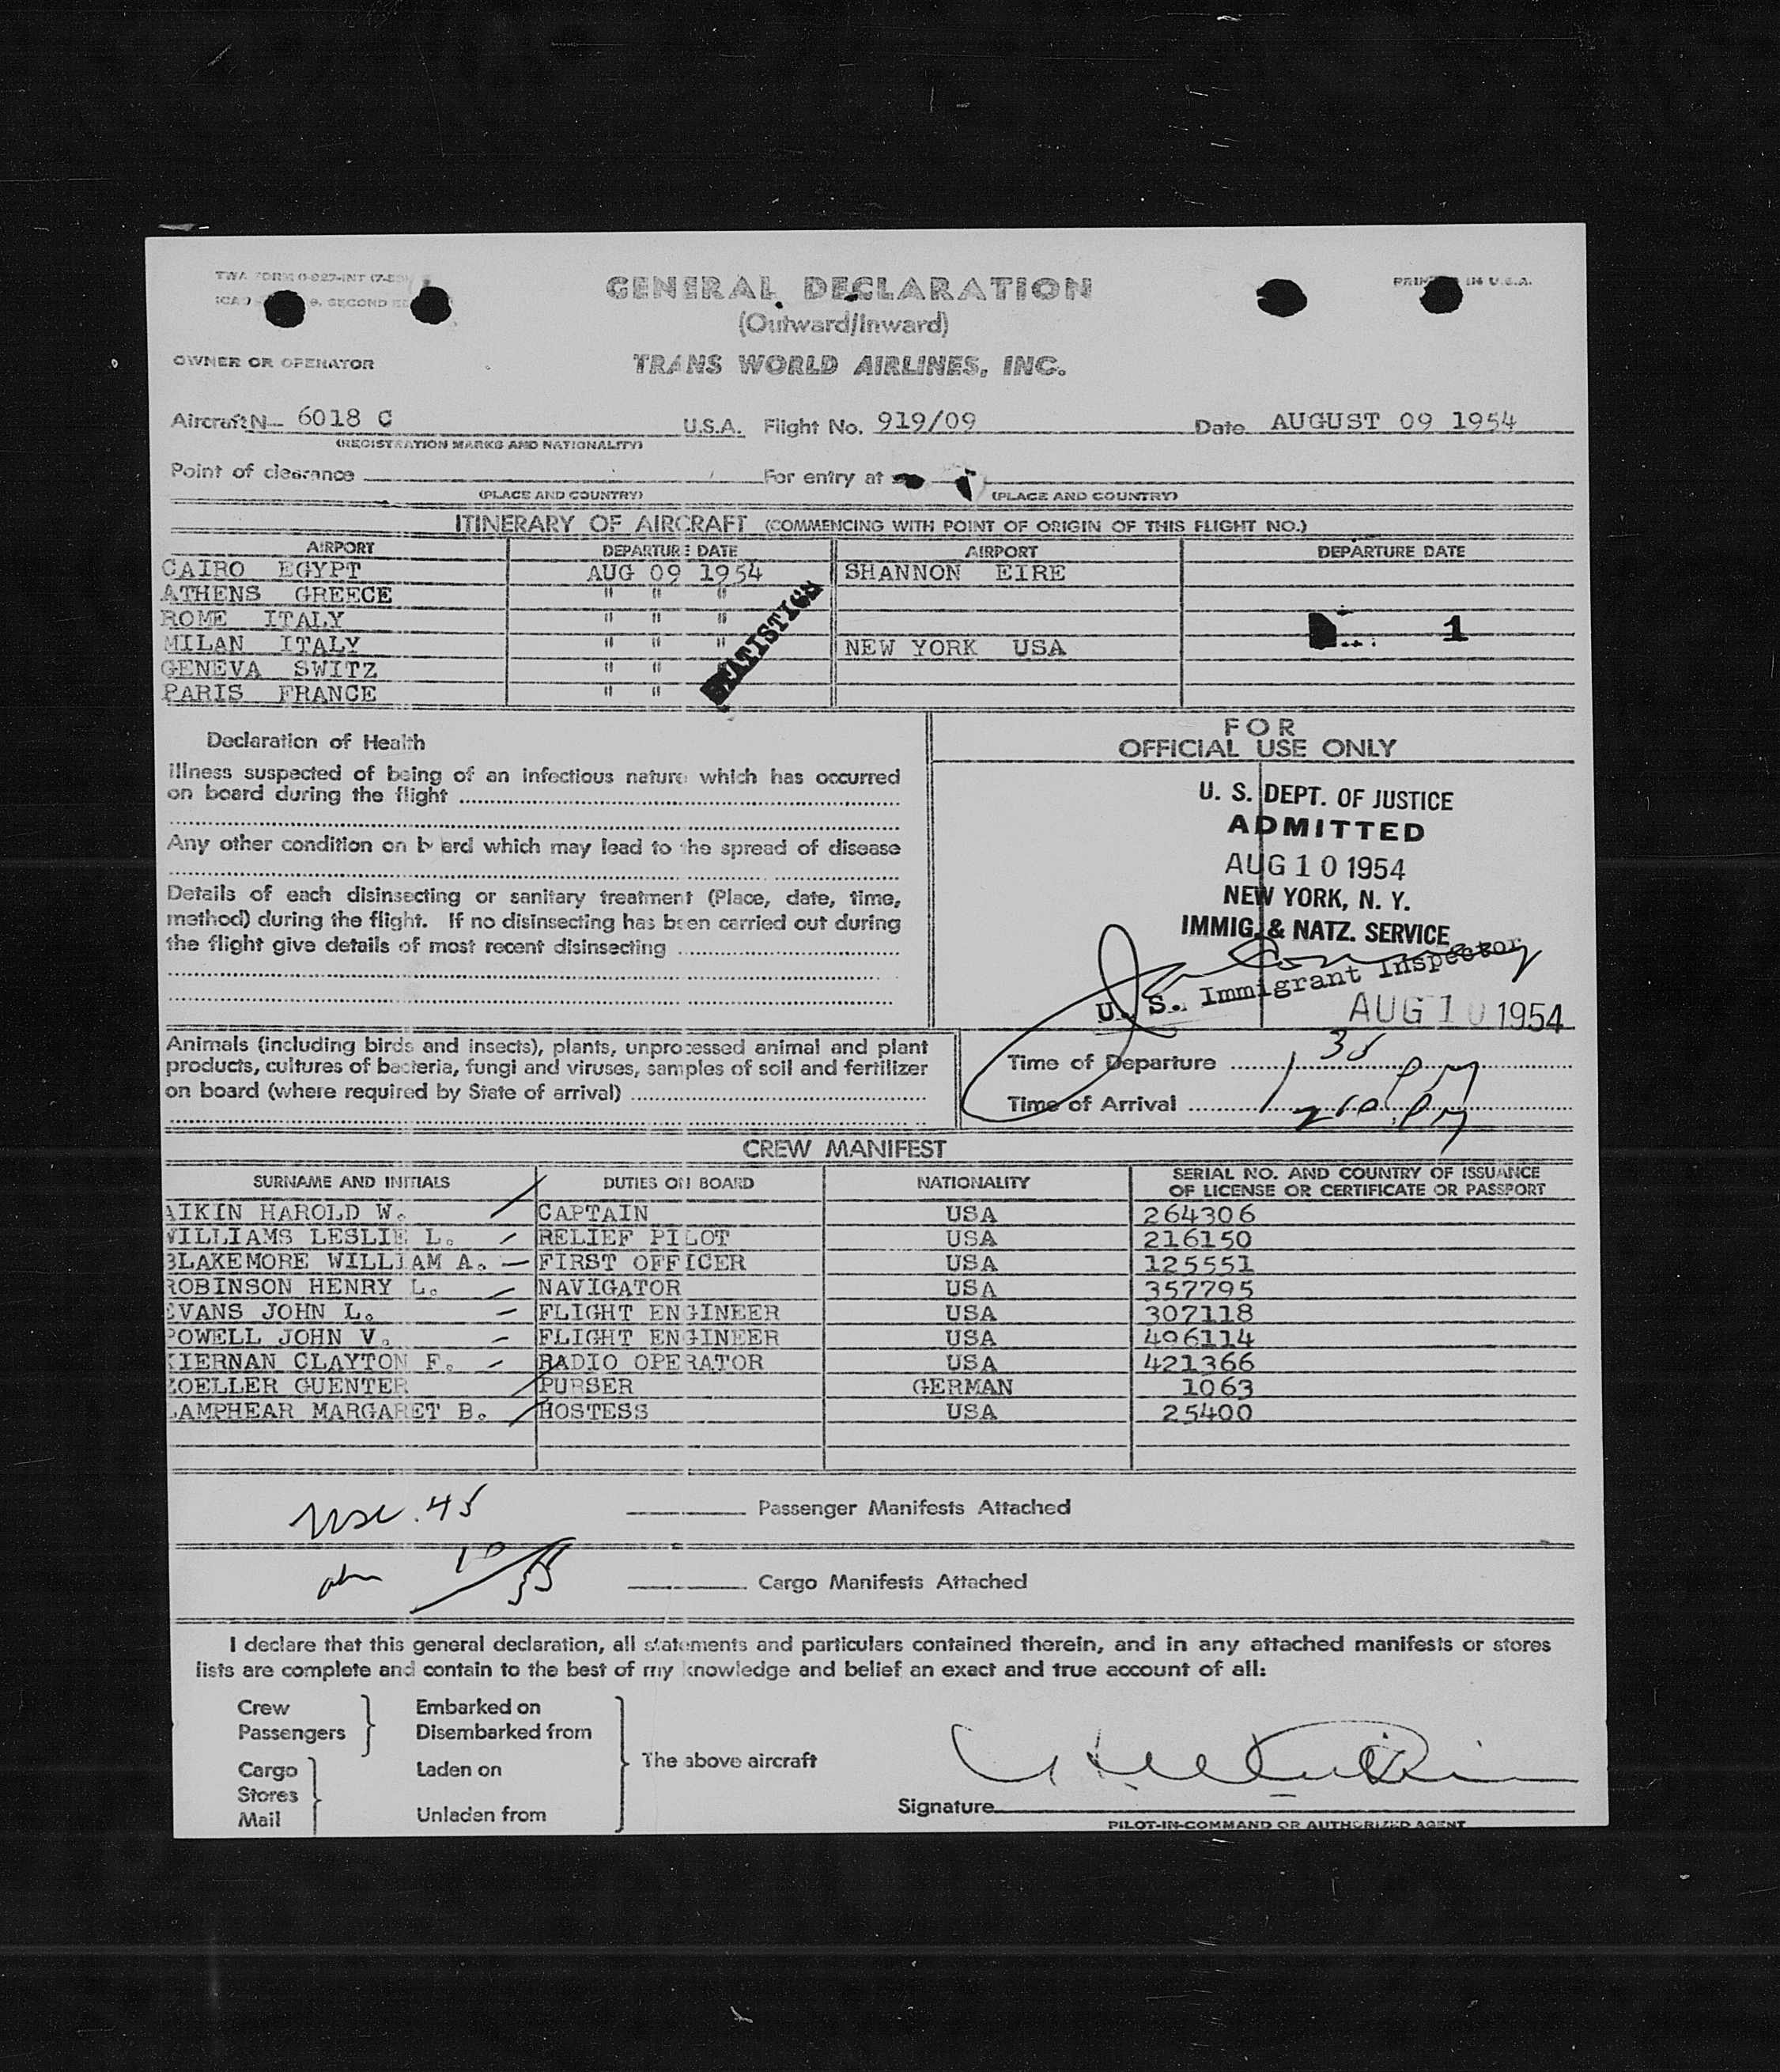 TWA FORM
GENERAL DECLARATION
PRIN IN U.S.A.
SECOND
(Outward/Inward)
OWNER OR OPERATOR
TRANS WORLD AIRLINES, INC.
Aircraft N 6018 C U.S.A. Flight No. 919/09 Date AUGUST 09 1954
(REGISTRATION MARKS AND NATIONALITY)
Point of clearance For entry at
(PLACE AND COUNTRY) (PLACE AND COUNTRY)
ITINERARY OF AIRCRAFT (COMMENCING WITH POINT OF ORIGIN OF THIS FLIGHT NO.)
AIRPORT DEPARTURE DATE AIRPORT DEPARTURE DATE
CAIRO EGYPT AUG 09 1954 SHANNON EIRE
ATHENS GREECE " " "
ROME ITALY " " " 1
MILAN ITALY " " " NEW YORK USA
GENEVA SWITZ " "
PARIS FRANCE " "
STATISTICS
Declaration of Health
Illness suspected of being of an infectious nature which has occurred
on board during the flight
Any other condition on board which may lead to the spread of disease
Details of each disinsecting or sanitary treatment (Place, date, time,
method) during the flight. If no disinsecting has been carried out during
the flight give details of most recent disinsecting
FOR
OFFICIAL USE ONLY
U. S. DEPT. OF JUSTICE
ADMITTED
AUG 10 1954
NEW YORK, N. Y.
IMMIG. & NATZ. SERVICE
U. S. Immigrant Inspector
AUG 10 1954
Animals (including birds and insects), plants, unprocessed animal and plant
products, cultures of bacteria, fungi and viruses, samples of soil and fertilizer
on board (where required by State of arrival)
Time of Departure 1 35 PM
Time of Arrival 210 PM
CREW MANIFEST
SURNAME AND INITIALS DUTIES ON BOARD NATIONALITY SERIAL NO. AND COUNTRY OF ISSUANCE
OF LICENSE OR CERTIFICATE OR PASSPORT
AIKIN HAROLD W. CAPTAIN USA 264306
WILLIAMS LESLIE L. RELIEF PILOT USA 216150
BLAKEMORE WILLIAM A. FIRST OFFICER USA 125551
ROBINSON HENRY L. NAVIGATOR USA 357795
EVANS JOHN L. FLIGHT ENGINEER USA 307118
POWELL JOHN V. FLIGHT ENGINEER USA 496114
KIERNAN CLAYTON F. RADIO OPERATOR USA 421366
ZOELLER GUENTER PURSER GERMAN 1063
LAMPHEAR MARGARET B. HOSTESS USA 25400
usc. 45 Passenger Manifests Attached
aln 10/55 Cargo Manifests Attached
I declare that this general declaration, all statements and particulars contained therein, and in any attached manifests or stores
lists are complete and contain to the best of my knowledge and belief an exact and true account of all:
Crew Embarked on
Passengers Disembarked from
Cargo Laden on The above aircraft
Stores
Mail Unladen from
Signature
PILOT-IN-COMMAND OR AUTHORIZED AGENT